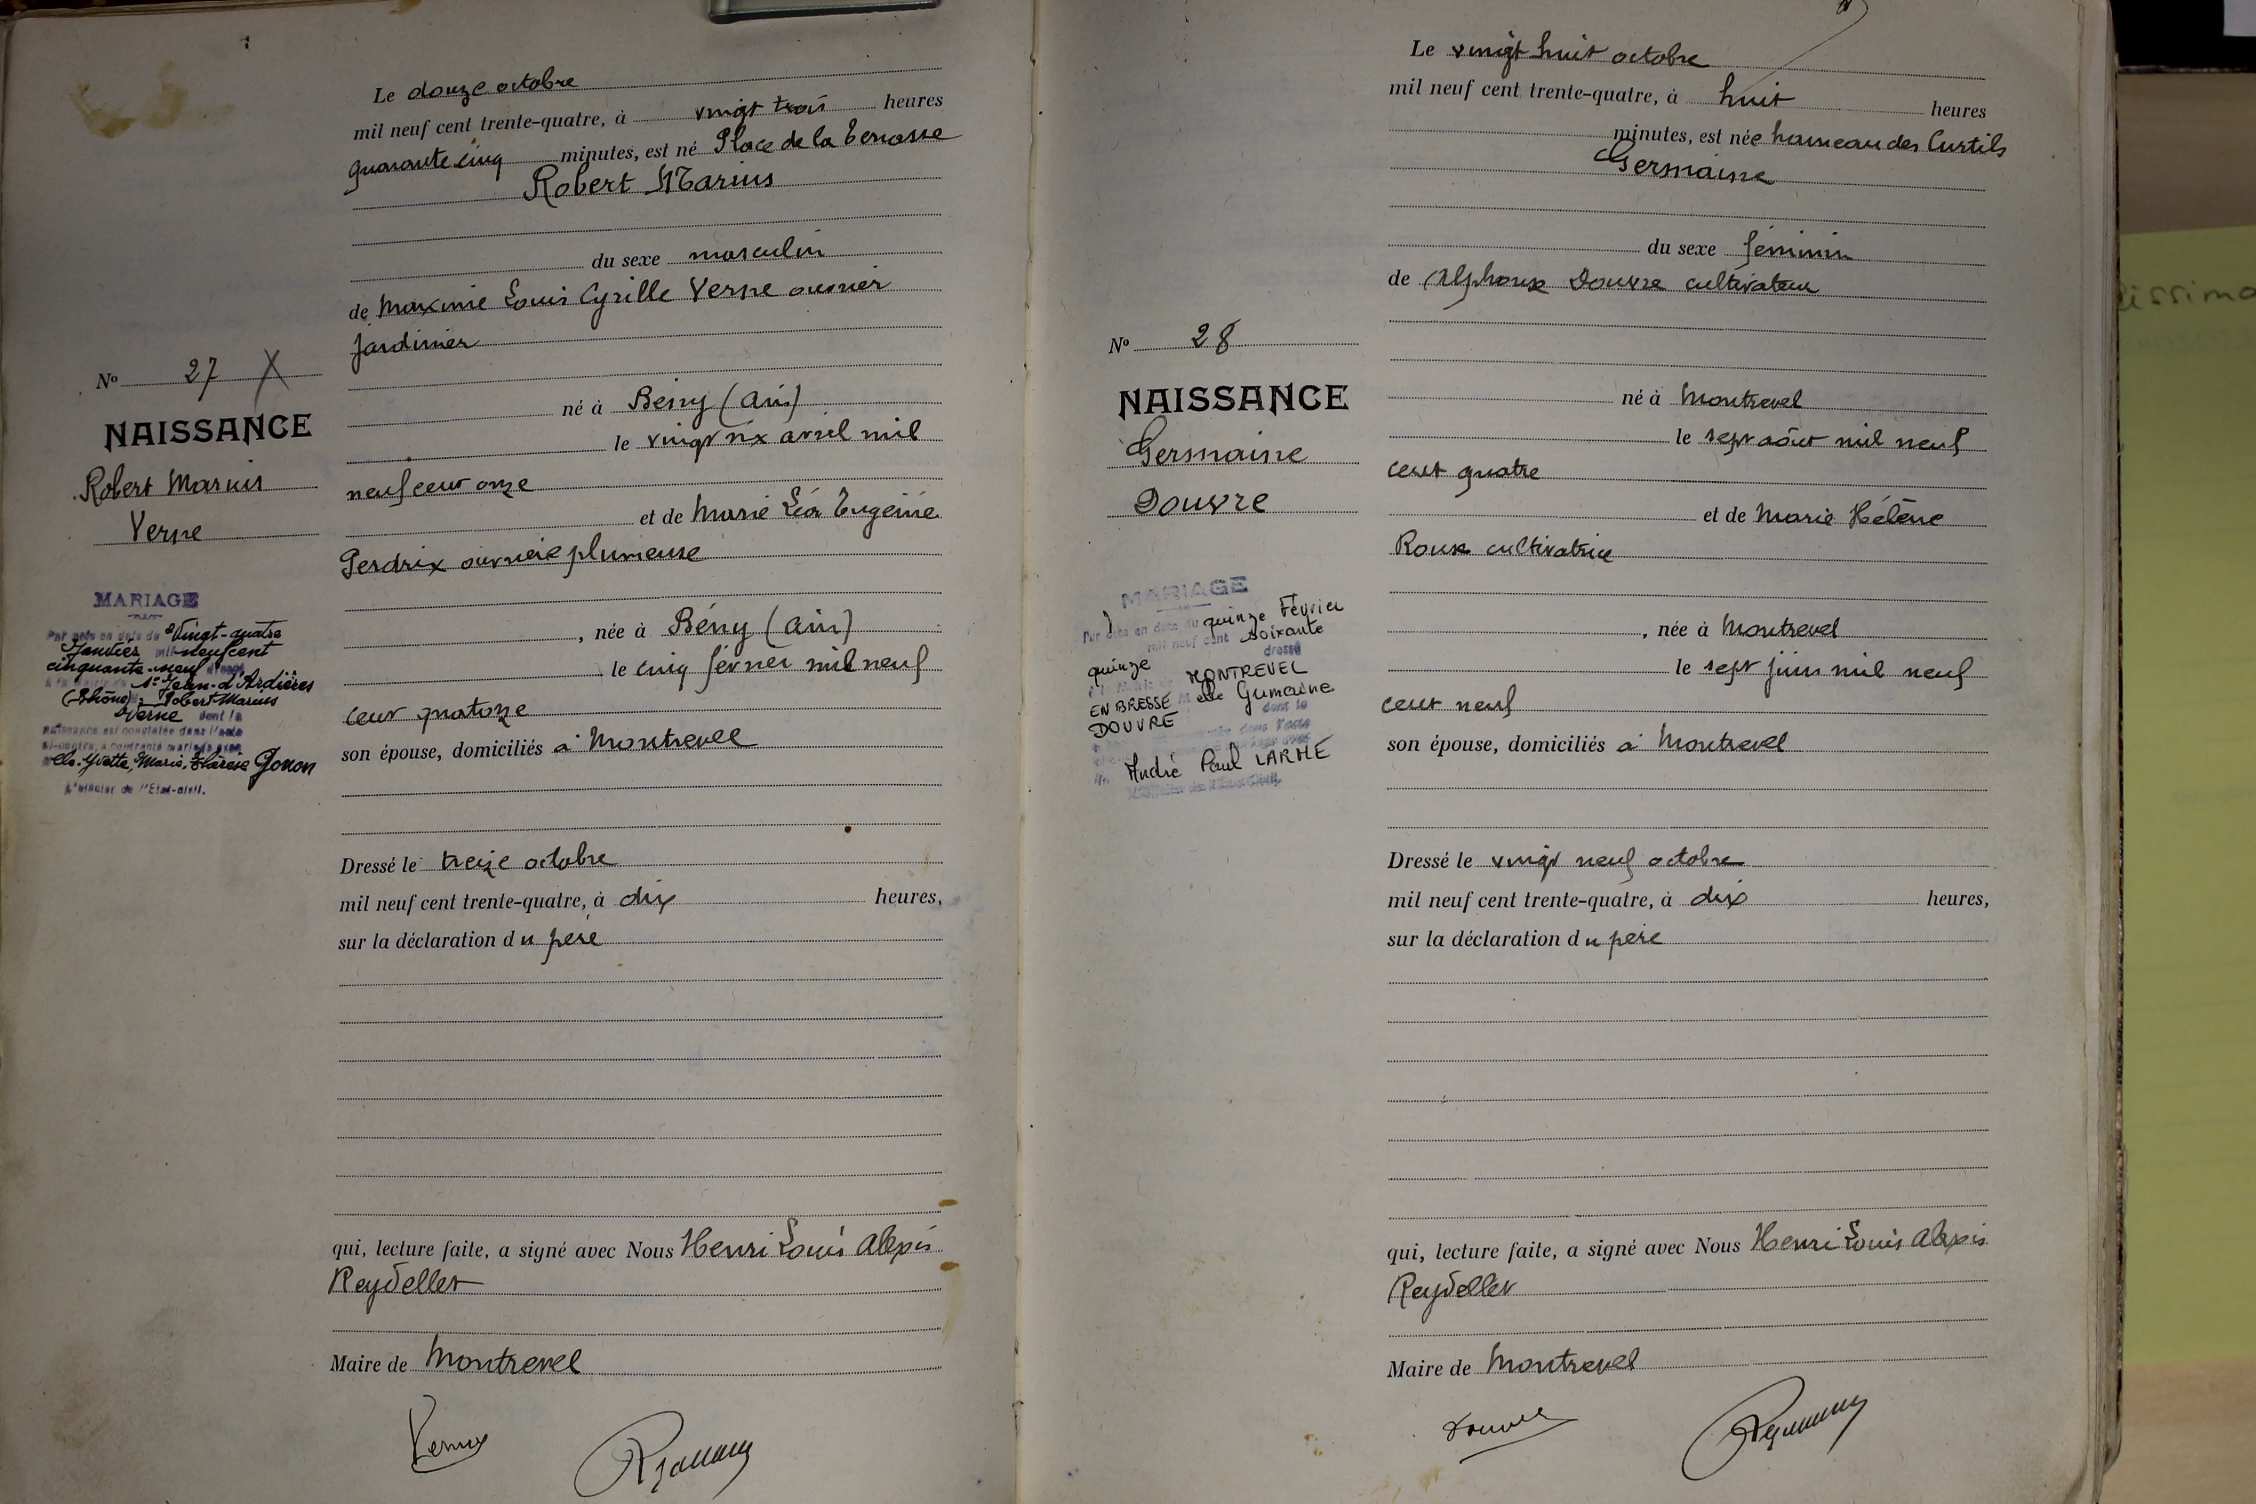 Le douze octobre
mil neuf cent trente-quatre, à vingt trois heures
quarante cinq minutes, est né Place de la Terrasse
Robert Marius
du sexe masculin
de Maxime Louis Cyrille Verne ouvrier
jardinier
né à Bény (Ain)
le vingt six avril mil
neuf cent onze
et de Marie Léa Eugénie
Perdrix ouvrière plumeuse
, née à Bény (Ain)
le cinq février mil neuf
cent quatorze
son épouse, domiciliés à Montrevel
Dressé le treize octobre
mil neuf cent trente-quatre, à dix heures,
sur la déclaration du père
qui, lecture faite, a signé avec Nous Henri Louis Alexis
Reydellet
Maire de Montrevel
No 27 X
NAISSANCE
Robert Marius
Verne
MARIAGE
Par acte en date du Vingt-quatre
Janvier mil neuf cent
cinquante-neuf
St Jean-d'Ardières
(Rhône) Robert Marius
Verne dont la
naissance est constatée dans l'acte
ci-contre, a contracté mariage avec
elle Yvette, Marie, Thérèse Gonon
L'Officier de l'Etat-civil.
Le vingt huit octobre
mil neuf cent trente-quatre, à huit heures
minutes, est née hameau des Curtils
Germaine
du sexe féminin
de Alphonse Douvre cultivateur
né à Montrevel
le sept août mil neuf
cent quatre
et de Marie Hélène
Roux cultivatrice
, née à Montrevel
le sept juin mil neuf
cent neuf
son épouse, domiciliés à Montrevel
Dressé le vingt neuf octobre
mil neuf cent trente-quatre, à dix heures,
sur la déclaration du père
qui, lecture faite, a signé avec Nous Henri Louis Alexis
Reydellet
Maire de Montrevel
Douvre
No 28
NAISSANCE
Germaine
Douvre
MARIAGE
Par acte en date du quinze Février
mil neuf cent soixante
quinze dressé
MONTREVEL
EN BRESSE Melle Germaine
DOUVRE dont la
André Paul LARME